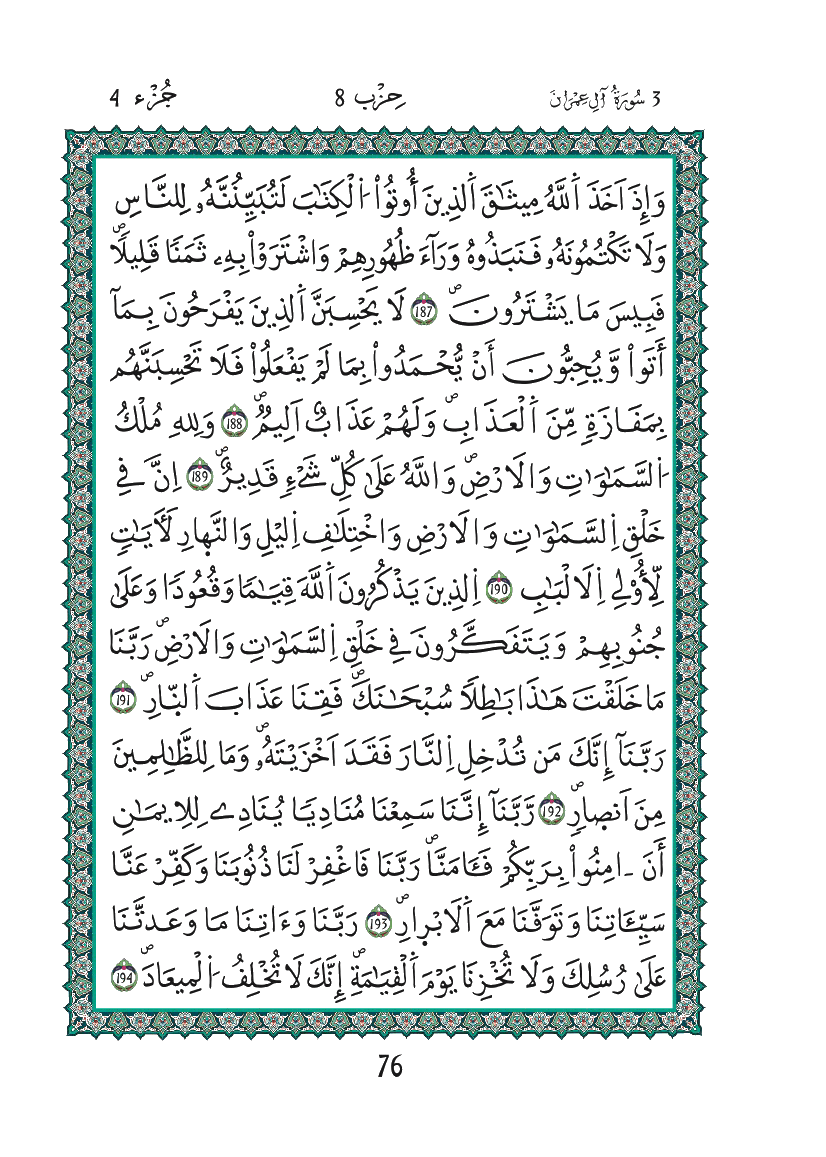 3 سُورَةُ آلِ عِمْرَانَ حِزْب 8 جُزْء 4
وَإِذَ اَخَذَ اَ۬للَّهُ مِيثَٰقَ اَ۬لذِينَ أُوتُواْ اُ۬لْكِتَٰبَ لَتُبَيِّنُنَّهُۥ لِلنَّاسِ
وَلَا تَكْتُمُونَهُۥ فَنَبَذُوهُ وَرَآءَ ظُهُورِهِمْ وَاشْتَرَوْاْ بِهِۦ ثَمَناٗ قَلِيلاٗۖ
فَبِيسَ مَا يَشْتَرُونَۖ 187 لَا يَحْسِبَنَّ اَ۬لذِينَ يَفْرَحُونَ بِمَآ
أَتَواْ وَّيُحِبُّونَ أَنْ يُّحْمَدُواْ بِمَا لَمْ يَفْعَلُواْ فَلَا تَحْسِبَنَّهُم
بِمَفَازَةٖ مِّنَ اَ۬لْعَذَابِۖ وَلَهُمْ عَذَابٌ اَلِيمٞۖ 188 وَلِلهِ مُلْكُ
اُ۬لسَّمَٰوَٰتِ وَالَارْضِۖ وَاللَّهُ عَلَىٰ كُلِّ شَےْءٖ قَدِيرٌۖ 189 اِنَّ فِے
خَلْقِ اِ۬لسَّمَٰوَٰتِ وَالَارْضِ وَاخْتِلَٰفِ اِ۬ليْلِ وَالنَّهارِ لَأٓيَٰتٖ
لِّأُوْلِے اِ۬لَالْبَٰبِ 190 اِ۬لذِينَ يَذْكُرُونَ اَ۬للَّهَ قِيَٰماٗ وَقُعُوداٗ وَعَلَىٰ
جُنُوبِهِمْ وَيَتَفَكَّرُونَ فِے خَلْقِ اِ۬لسَّمَٰوَٰتِ وَالَارْضِۖ رَبَّنَا
مَا خَلَقْتَ هَٰذَا بَٰطِلاٗ سُبْحَٰنَكَۖ فَقِنَا عَذَابَ اَ۬لنّ۪ارِۖ 191
رَبَّنَآ إِنَّكَ مَن تُدْخِلِ اِ۬لنَّارَ فَقَدَ اَخْزَيْتَهُۥۖ وَمَا لِلظَّٰلِمِينَ
مِنَ اَنص۪ارٖۖ 192 رَّبَّنَآ إِنَّنَا سَمِعْنَا مُنَادِياٗ يُنَادِے لِلِايمَٰنِ
أَنَ ـ امِنُواْ بِرَبِّكُمْ فَـَٔامَنَّاۖ رَبَّنَا فَاغْفِرْ لَنَا ذُنُوبَنَا وَكَفِّرْ عَنَّا
سَيِّـَٔاتِنَا وَتَوَفَّنَا مَعَ اَ۬لَابْر۪ارِۖ 193 رَبَّنَا وَءَاتِنَا مَا وَعَدتَّنَا
عَلَىٰ رُسُلِكَ وَلَا تُخْزِنَا يَوْمَ اَ۬لْقِيَٰمَةِۖ إِنَّكَ لَا تُخْلِفُ اُ۬لْمِيعَادَۖ 194
76